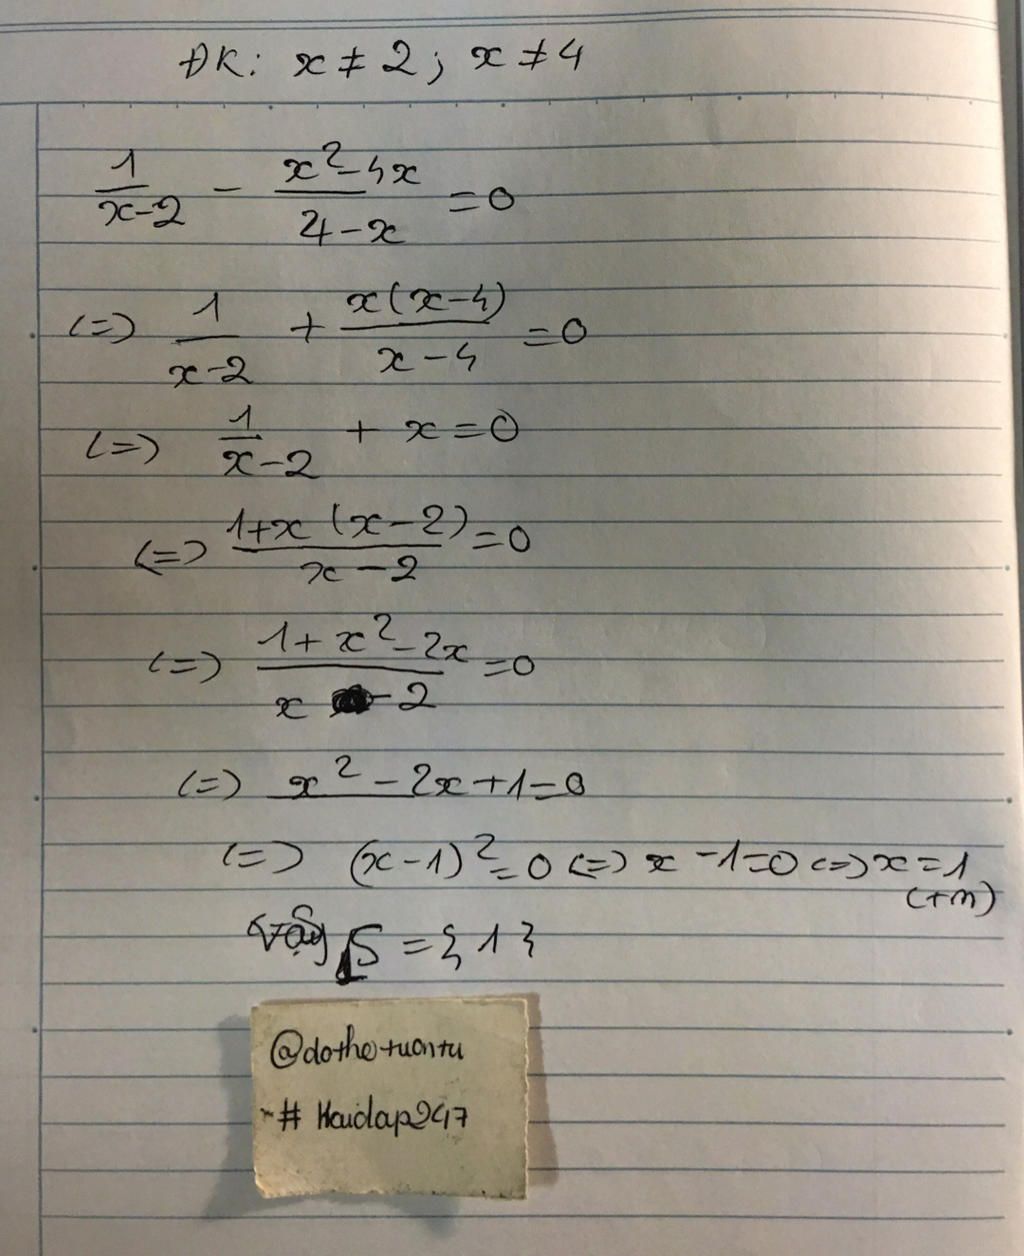 ĐK: x ≠ 2; x ≠ 4
1/(x-2) - (x²-4x)/(4-x) = 0
(=) 1/(x-2) + x(x-4)/(x-4) = 0
(=) 1/(x-2) + x = 0
(=) (1+x(x-2))/(x-2) = 0
(=) (1+x²-2x)/(x-2) = 0
(=) x² - 2x + 1 = 0
(=) (x-1)² = 0 (=) x - 1 = 0 (=) x = 1
(tm)
Vậy S = {1}
@dothetuantu
#Hoidap247